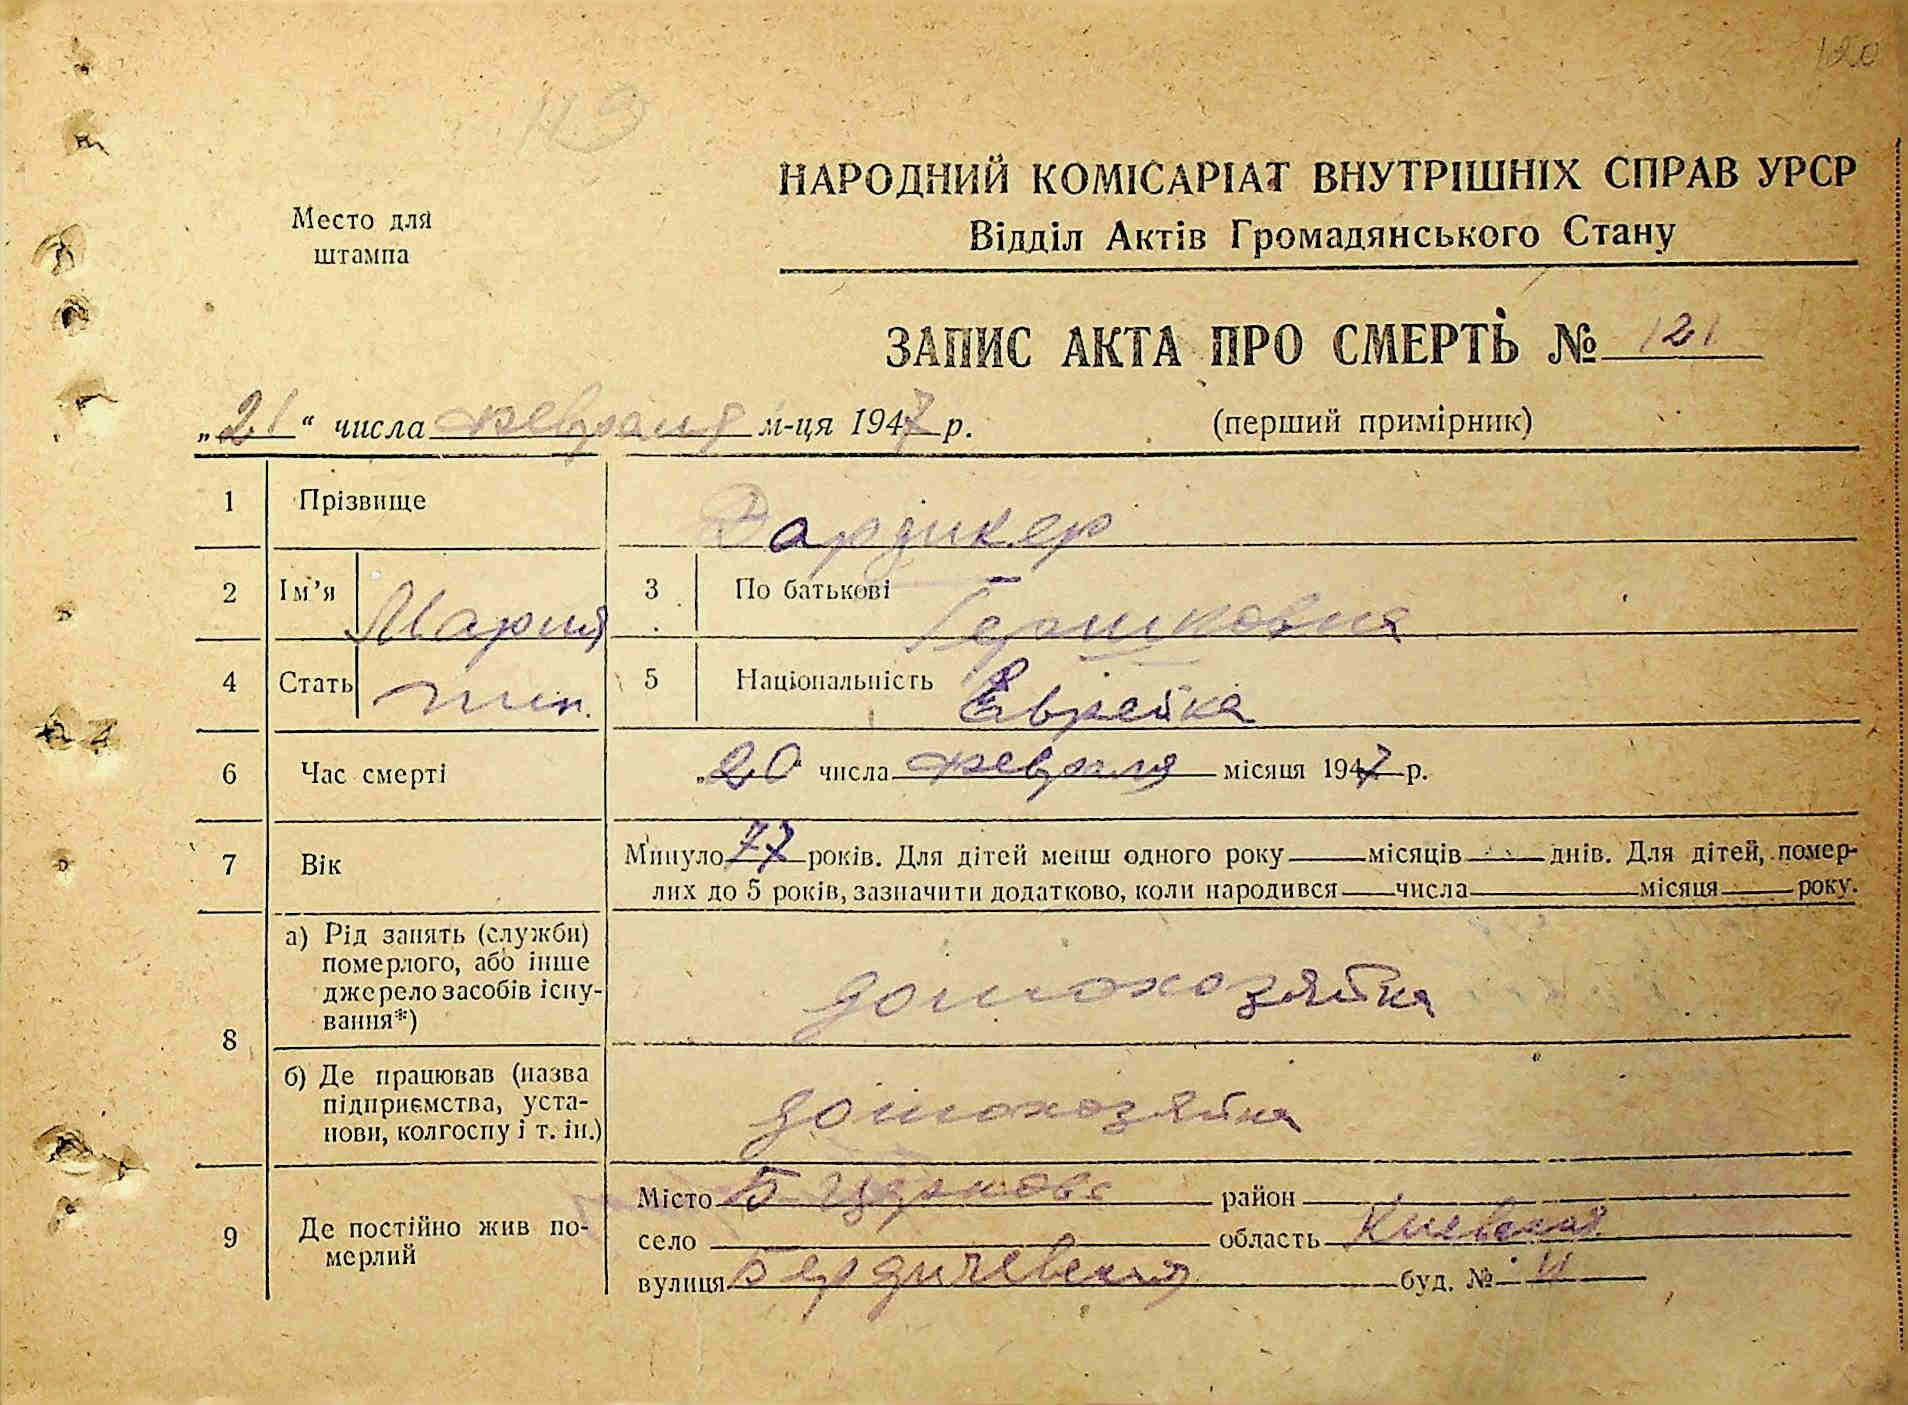 120
113
Место для
штампа
НАРОДНИЙ КОМІСАРІАТ ВНУТРІШНІХ СПРАВ УРСР
Відділ Актів Громадянського Стану
ЗАПИС АКТА ПРО СМЕРТЬ № 121
„21“ числа февраля м-ця 1947 р. (перший примірник)
1 Прізвище Дардикер
2 Ім'я Мария 3 По батькові Гершковна
4 Стать жін. 5 Національність Еврейка
6 Час смерті „20 числа февраля місяця 1947 р.
7 Вік Минуло 77 років. Для дітей менш одного року місяців днів. Для дітей, помер-
лих до 5 років, зазначити додатково, коли народився числа місяця року.
8 а) Рід занять (служби)
померлого, або інше
джерело засобів існу-
вання*)
домохозяйка
б) Де працював (назва
підприємства, уста-
нови, колгоспу і т. ін.)
домохозяйка
9 Де постійно жив по-
мерлий
Місто Б Церковь район
село область Киевская
вулиця Бердичевская буд. №